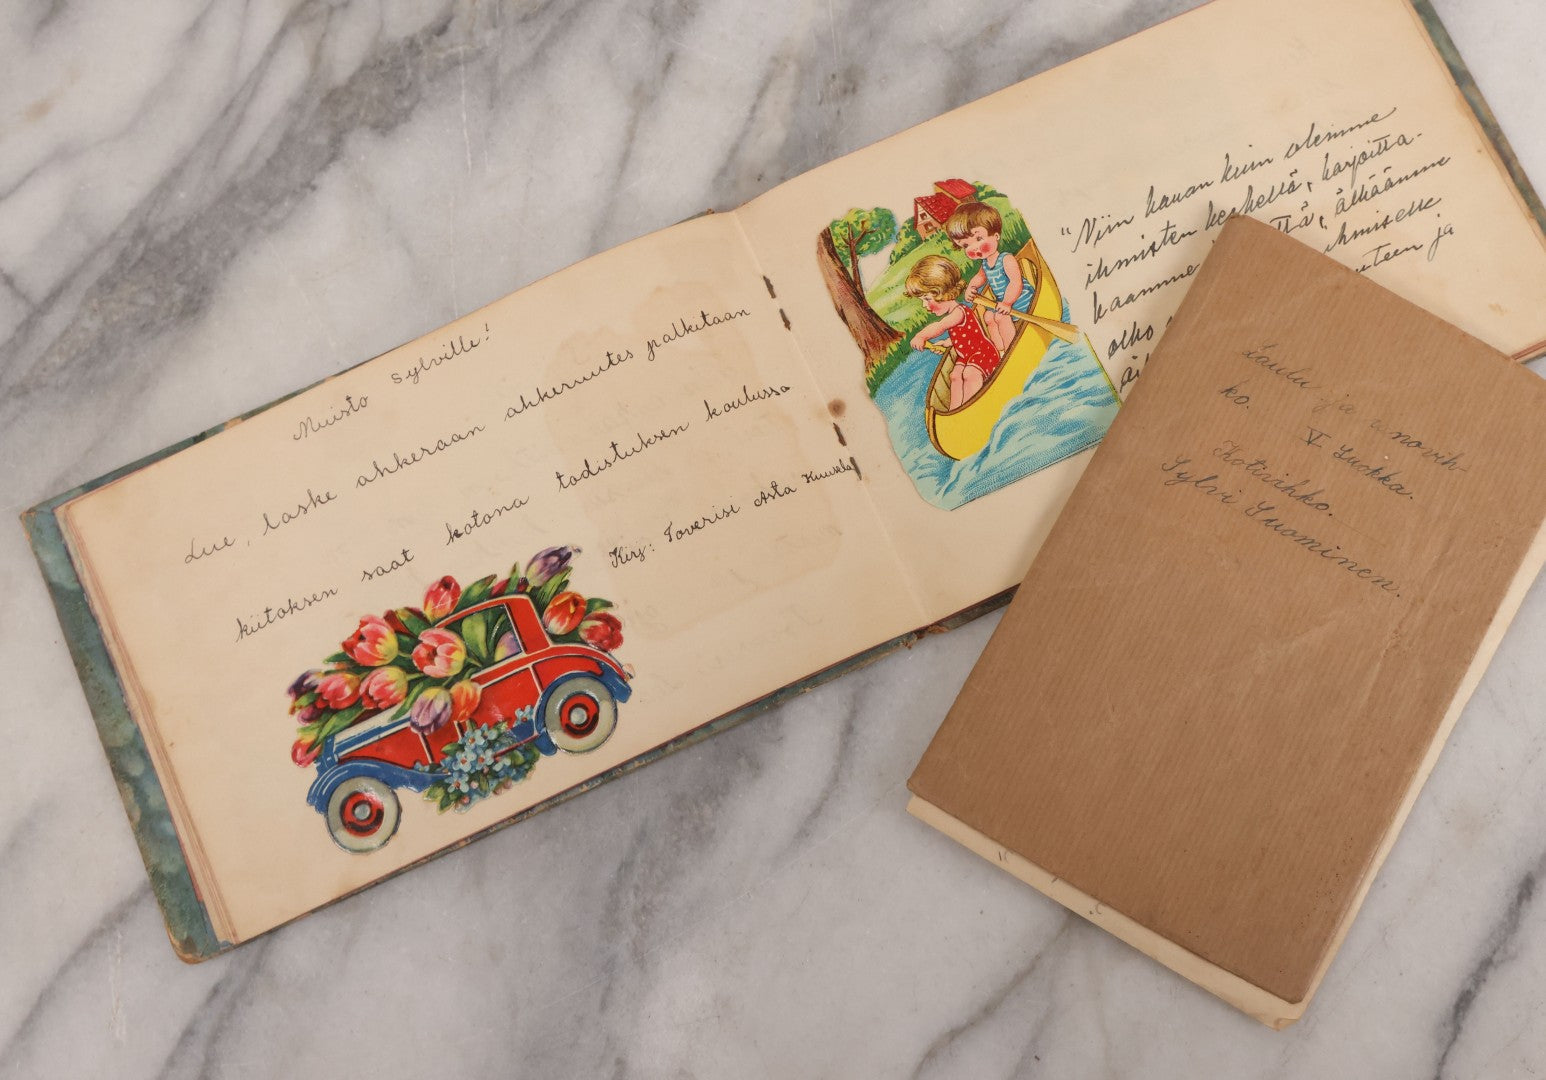 Muisto Sylville!
Lue, laske ahkeraan ahkeruutes palkitaan
kiitoksen saat kotona todistuksen koulussa
Kirj: Toverisi Asta Kuuvela
"Niin kauan kuin olemme
ihmisten keskellä, harjoitta-
kaamme ttä, älkäämme
olko ihmiselle
uteen ja
Laulu ja runovih-
ko.
V Luokka.
Kotivihko.
Sylvi Suominen.